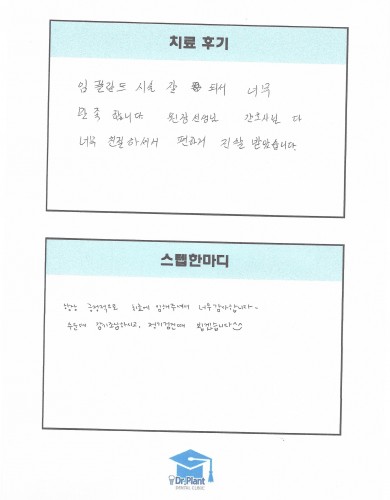 치료 후기
임플란트 시술 잘 되서 너무
만족 합니다 원장선생님 간호사님 다
너무 친절하셔서 편하게 진찰 받았습니다.
스텝한마디
항상 긍정적으로 치료에 임해주셔서 너무 감사합니다~
추운데 감기조심하시고, 정기검진때 뵙겠습니다^^
Dr.Plant
DENTAL CLINIC